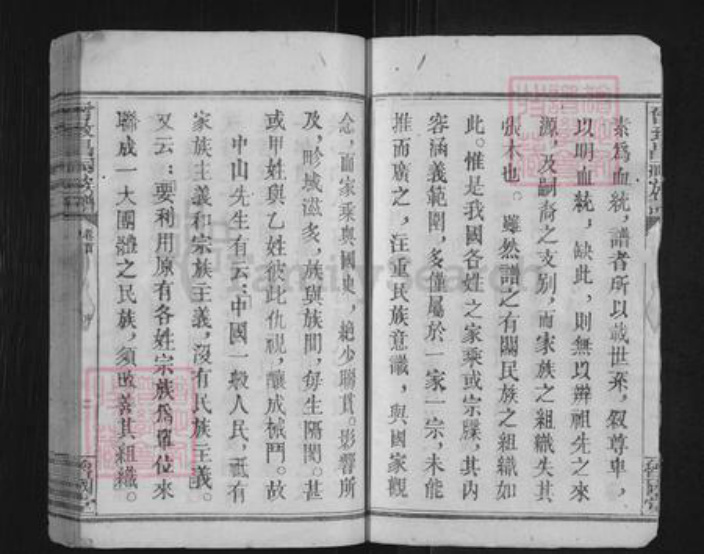 素爲血統，譜者所以載世系，叙尊卑，
以明血統，缺此，則無以辨祖先之來
源，及嗣裔之支別，而家族之組織失其
依木也。雖然譜之有關民族之組織如
此。惟是我國各姓之家乘或宗牒，其內
容涵義範圍，多僅屬於一家一宗，未能
推而廣之，注重民族意識，與國家觀
念，而家乘與國史，絶少聯貫。影響所
及，畛域滋多，族與族間，每生隔閡。甚
或甲姓與乙姓彼此仇視，釀成械鬥。故
中山先生有云：中國一般人民，祗有
家族主義和宗族主義，沒有民族主義。
又云：要利用原有各姓宗族爲單位來
聯成一大團體之民族，須改善其組織。
卷首
序
FamilySearch